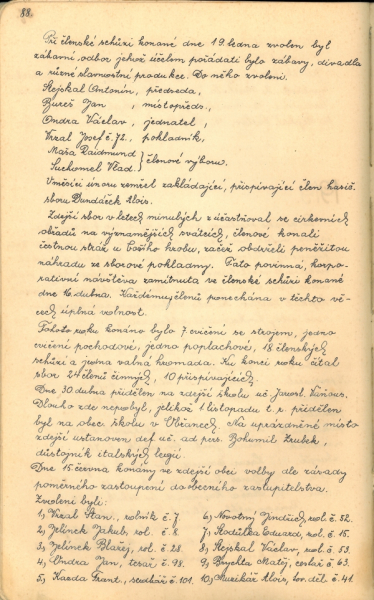 88.
Při členské schůzi konané dne 19. ledna zvolen byl
zábavní odbor jehož účelem pořádati bylo zábavy, divadla
a různé slavnostní produkce. Do něho zvoleni:
Stejskal Antonín, předseda,
Bureš Jan, místopředs.,
Ondra Václav, jednatel,
Vrzal Josef č. 72., pokladník,
Maša Raidmund
Suchomel Vlad. } členové výboru.
V měsíci únoru zemřel zakládající, přispívající člen hasič.
sboru Dundáček Alois.
Zdejší sbor v letech minulých zúčastňoval se církevních
obřadů na význačnějších svátcích, členové konali
čestnou stráž u Božího hrobu, začež obdrželi peněžitou
náhradu ze sborové pokladny. Tato povinná, korpo-
rativní návštěva zamítnuta ve členské schůzi konané
dne 16. dubna. Každému členu ponechána v těchto vě-
cech úplná volnost.
Tohoto roku konáno bylo 7 cvičení se strojem, jedno
cvičení pochodové, jedno poplachové, 18 členských
schůzí a jedna valná hromada. Ku konci roku čítal
sbor 24 členů činných, 10 přispívajících.
Dne 30 dubna přidělen na zdejší školu uč. Jarosl.
Dlouho zde nepobyl, jelikož 1 listopadu t. r. přidělen
byl na obec. školu v Na uprázdněné místo
zdejší ustanoven def. uč. ad pers. Bohumil Zrubek,
důstojník italských legií.
Dne 15 června konány ve zdejší obci volby dle zásady
poměrného zastoupení do obecního zastupitelstva.
Zvoleni byli:
1, Vrzal Stan., rolník č. 7
2, Jelínek Jakub, rol. č. 8.
3, Jelínek Blažej, rol. č. 28.
4, Ondra Jan, tesař č. 98.
5, Frant., č. 101.
6, Novotný Jindřich, rol. č. 52.
7, Eduard, rol. č. 15.
8, Stejskal Václav, rol. č. 53.
9, Brychta Matěj, cestář č. 63.
10, Alois, č. 41.